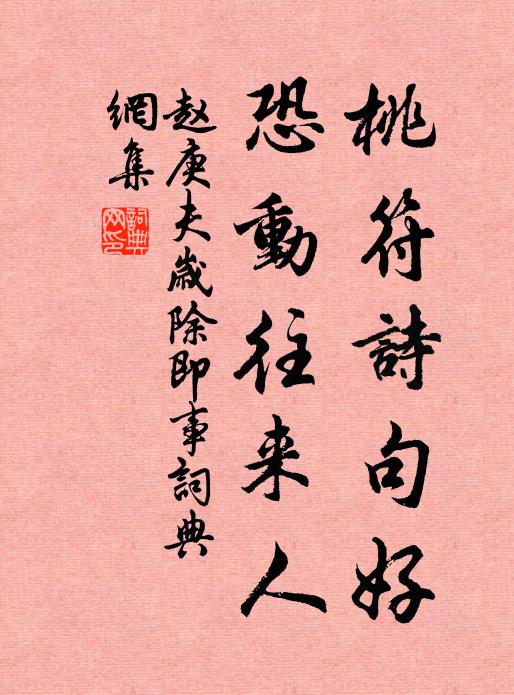 桃符詩句好
恐動往来人
赵庚夫歲除即事詞典
網集
詞典网印